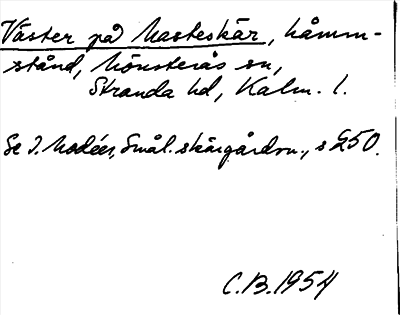 Väster på Masteskär, hamm-
stånd, Mönsterås sn,
Stranda hd, Kalm. l.
Se I. Modéer, Smål. skärgårdsn., s 250.
C.B. 1954